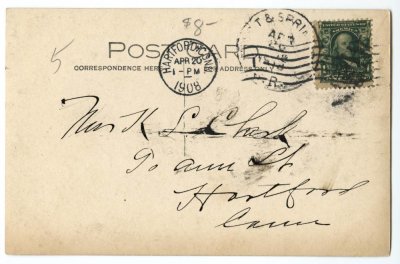 $8-
5
POST CARD
CORRESPONDENCE HERE
ADDRESS ONLY
HARTFORD, CONN.
APR 20
1-PM
1908
T & SPRI
R.P.O.
Mrs K L Clark
90 Ann St
Hartford
Conn